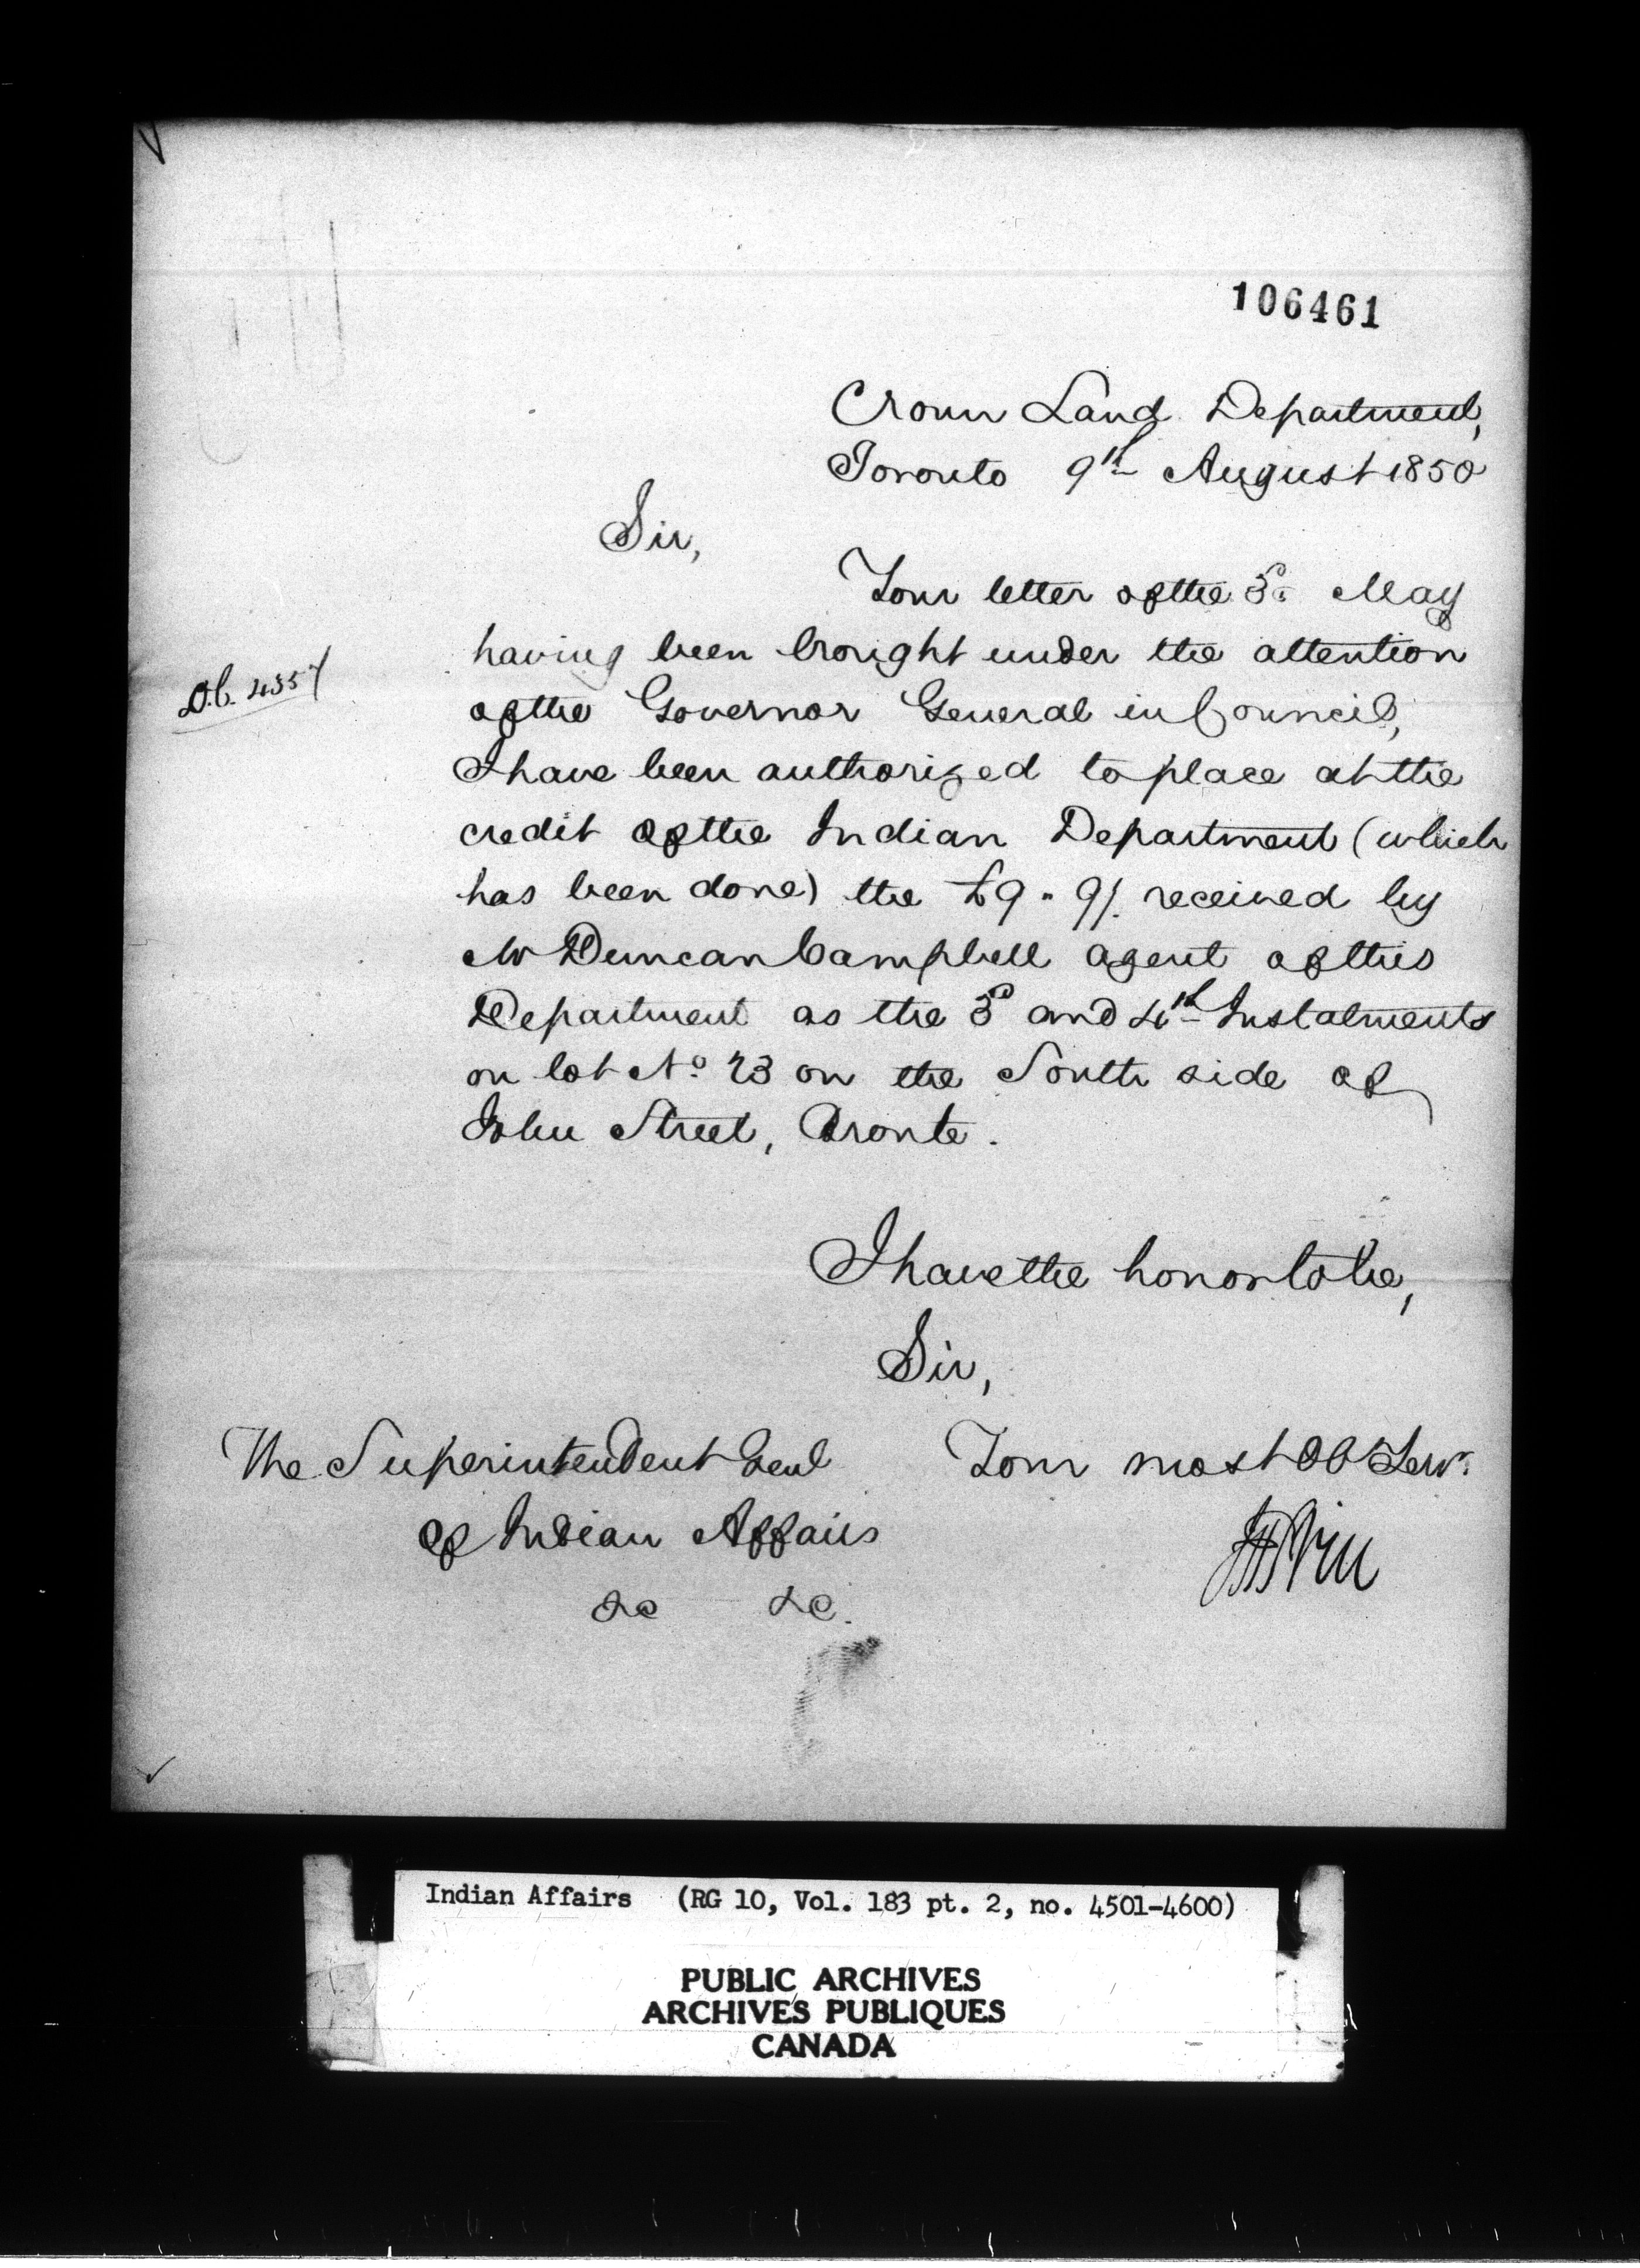 106461
Crown Land Department,
Toronto 9th August 1850
Sir,
Your letter of the 3d May
having been brought under the attention
of the Governor General in Council,
I have been authorized to place at the
credit of the Indian Department (which
has been done) the £9 " 9/. received by
Mr Duncan Campbell agent of this
Department as the 3d and 4th Instalments
on lot No. 23 on the South side of
John Street, Bronte.
I have the honor to be,
Sir,
Your most Ob Serv.
The Superintendent Genl
of Indian Affairs
&c &c.
Indian Affairs (RG 10, Vol. 183 pt. 2, no. 4501-4600)
PUBLIC ARCHIVES
ARCHIVES PUBLIQUES
CANADA